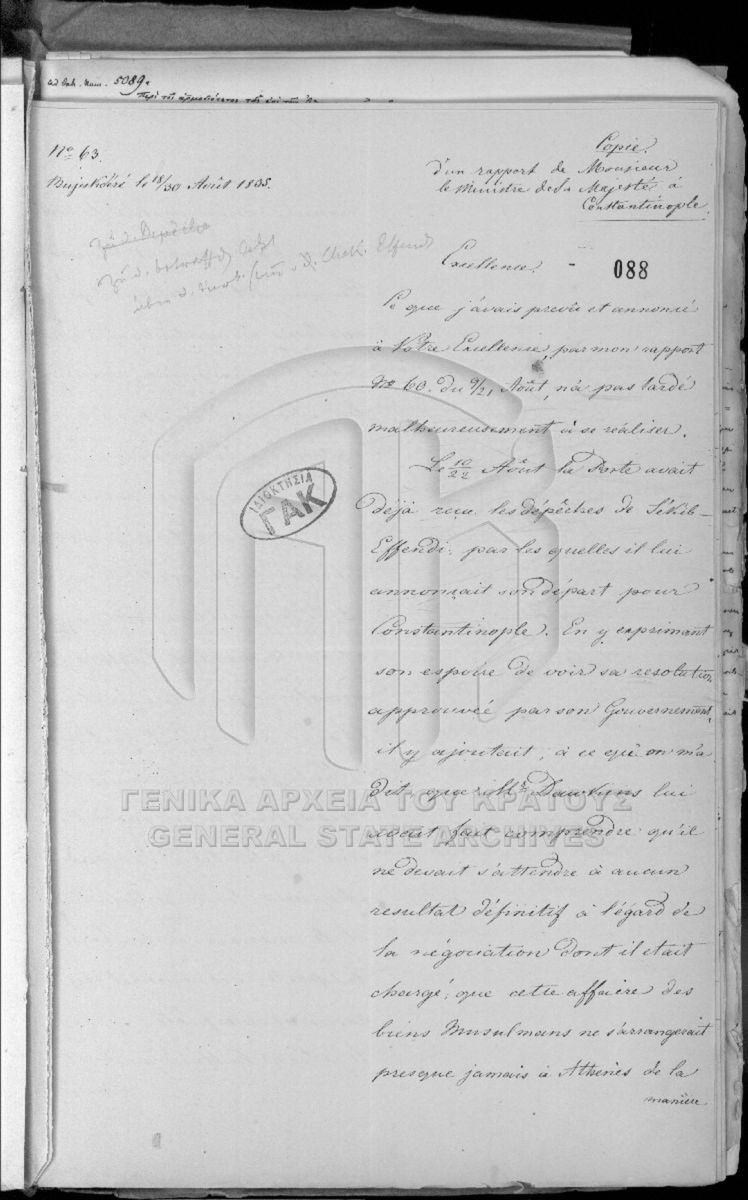 ad Dek. Num. 5089.
Περὶ τῆς ἁρμοδιότητος τῆς ἐπὶ τῶν
No 63.
Bujukdéré le 18/30 Août 1835.
Copie.
d'un rapport de Monsieur
le Ministre de Sa Majesté à
Constantinople.
Excellence.
088
Ce que j'avais prevû et annoncé
à Votre Excellence, par mon rapport
No 60. du 9/21 Août, n'a pas tardé
malheureusement à se réaliser.
Le 10/22 Août la Porte avait
déjà reçu les dépêches de Sékib-
Effendi: par les quelles il lui
annonçait son départ pour
Constantinople. En y exprimant
son espoir de voir sa resolution
approuvée par son Gouvernement,
il y ajoutait, à ce qu'on m'a
dit que Mr Dawkins lui
avait fait comprendre qu'il
ne devait s'attendre à aucun
resultat définitif à l'égard de
la négociation dont il était
chargé; que cette affaire des
biens Musulmans ne s'arrangerait
presque jamais à Athènes de la
manière
ΙΔΙΟΚΤΗΣΙΑ
ΓΑΚ
ΓΕΝΙΚΑ ΑΡΧΕΙΑ ΤΟΥ ΚΡΑΤΟΥΣ
GENERAL STATE ARCHIVES